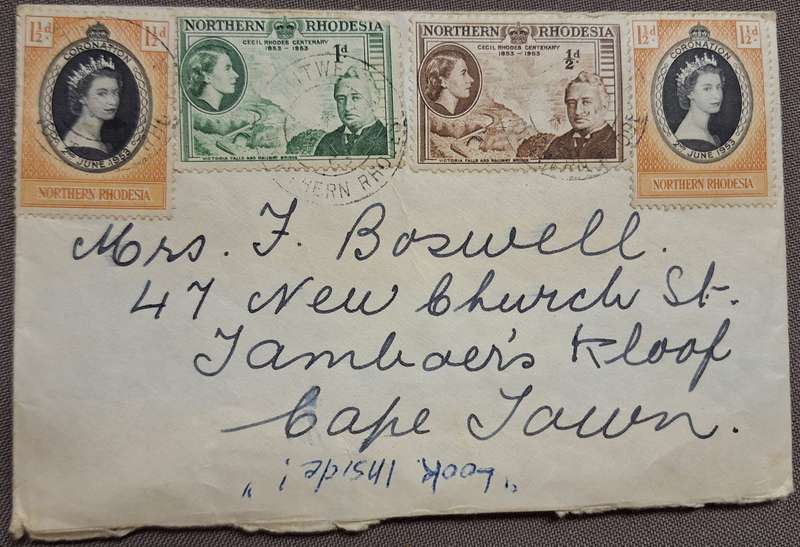 1½d. 1½d.
CORONATION
2ND JUNE 1953
NORTHERN RHODESIA
NORTHERN RHODESIA
CECIL RHODES CENTENARY
1853 - 1953
1d
VICTORIA FALLS AND RAILWAY BRIDGE
NORTHERN RHODESIA
CECIL RHODES CENTENARY
1853 - 1953
½d.
VICTORIA FALLS AND RAILWAY BRIDGE
1½d. 1½d.
CORONATION
2ND JUNE 1953
NORTHERN RHODESIA
Mrs. F. Boswell.
47 New Church St.
Tamboer's Kloof
Cape Town.
"Look Inside!"